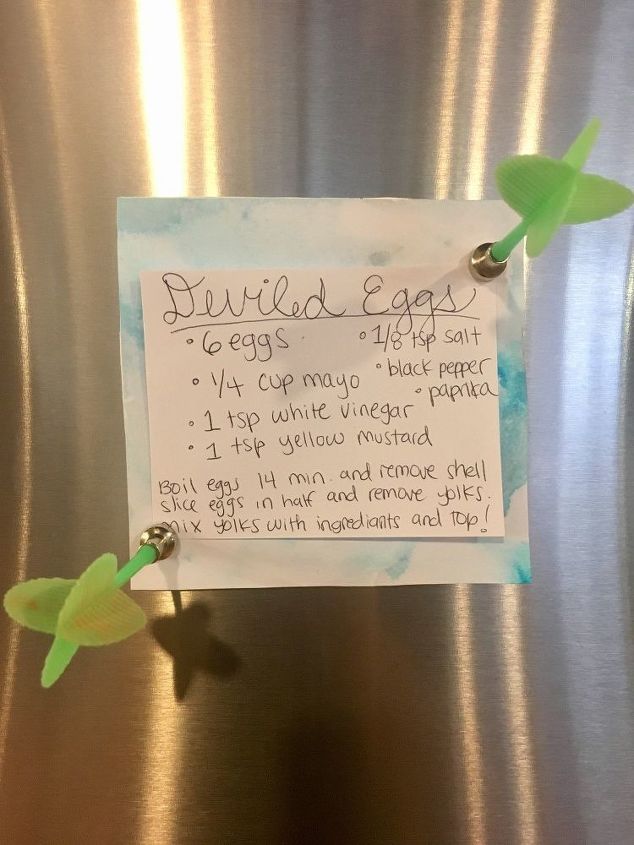 Deviled Eggs
• 6 eggs
• 1/8 tsp salt
• black pepper
• 1/4 cup mayo
• paprika
• 1 tsp white vinegar
• 1 tsp yellow mustard
Boil eggs 14 min. and remove shell
slice eggs in half and remove yolks.
mix yolks with ingrediants and top!